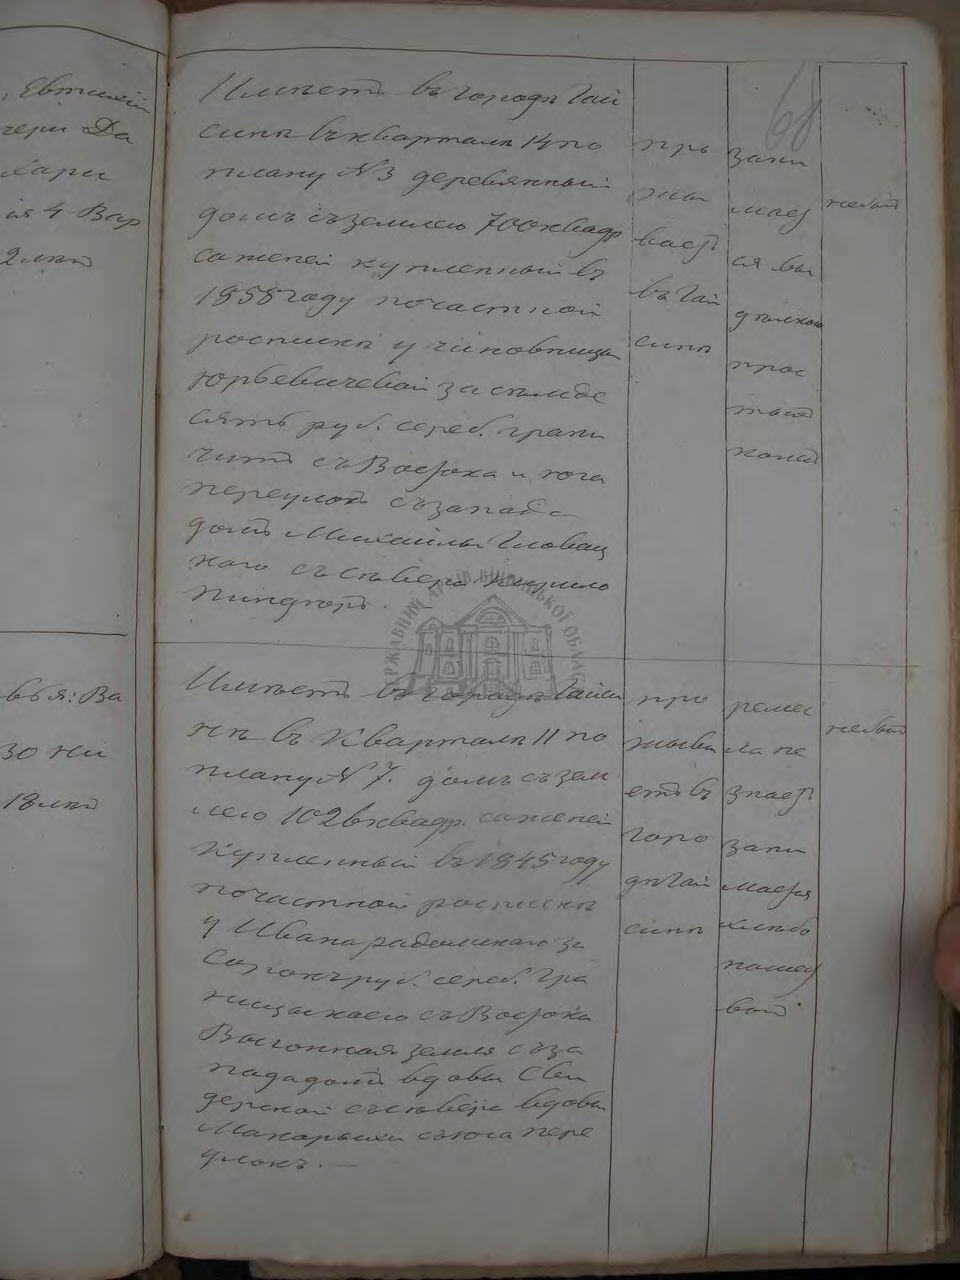 60
, Евтихій
чери Да
хари
ія 4 Вар
2 лѣт
Имѣетъ въ городѣ Гай
синѣ въ кварталѣ 14 по
плану № 3 деревянный
домъ съ землею 700 квадр
саженей купленный въ
1858 году по частной
роспискѣ у чиновницы
Юрьевичевой за семьде
сятъ руб. сереб. грани
читъ съ Востока и юга
переулокъ съ запада
домъ Михайлы Гловац
каго съ сѣвера Кирило
.
про
жи
ваетъ
въ Гай
синѣ
зани
мает
ся вы
дѣлкою
прос
тыхъ
небылъ
вья: Ва
30 ни
18 лѣтъ
Имѣетъ въ городѣ Гайси
нѣ въ кварталѣ 11 по
плану № 7. домъ съ зем
лею 102 квадр. саженей
купленный въ 1845 году
по частной роспискѣ
у Ивана Радомскаго за
сорокъ руб. сереб. гра
съ Востока
Выгонная земля съ за
пада домъ вдовы Сви
дерской съ сѣвера вдовы
Макарыхи съ юга пере
улокъ. —
про
жива
етъ въ
горо
дѣ Гай
синѣ
ремес
ла не
знаетъ
зани
мается
хлѣбо
пашес
вомъ
небылъ
ДЕРЖАВНИЙ АРХІВ ВІННИЦЬКОЇ ОБЛАСТІ